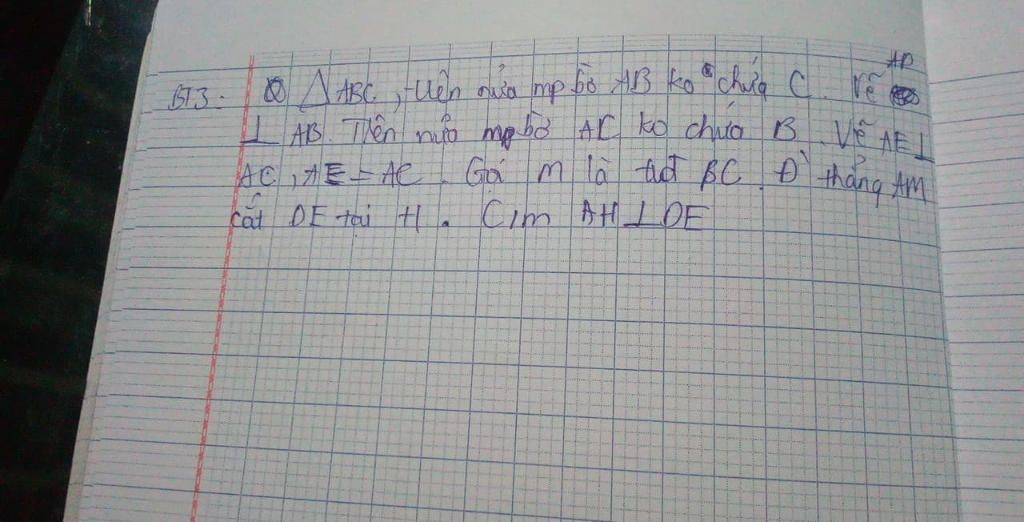 BT3: Δ ABC, trên nửa mp bờ AB ko chứa C. Vẽ AD
⊥ AB. Trên nửa mp bờ AC ko chứa B. Vẽ AE ⊥
AC, AE = AC. Gọi M là tđ BC. Đ' thẳng AM
cắt DE tại H. C/m AH ⊥ DE